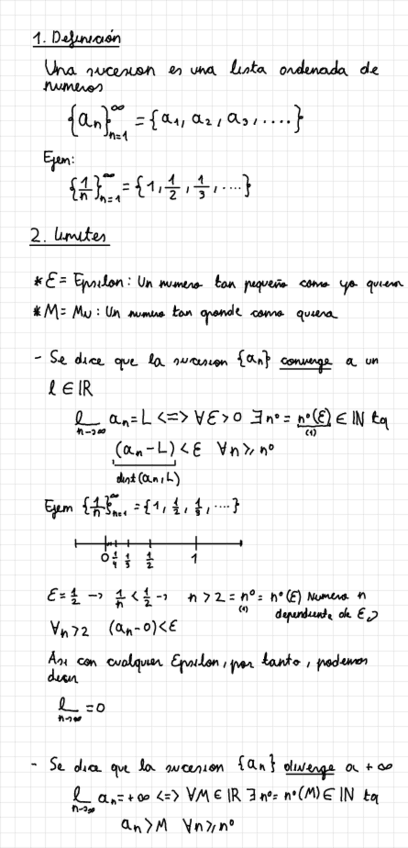 1. Definición
Una sucesion es una lista ordenada de
numeros
{aₙ}ₙ₌₁^∞ = {a₁, a₂, a₃, ....}
Ejem:
{1/n}ₙ₌₁^∞ = {1, 1/2, 1/3, ...}
2. Limites
* Ɛ = Epsilon: Un numero tan pequeño como yo quiera
* M = Mu: Un numero tan grande como quiera
- Se dice que la sucesion {aₙ} converge a un
l ∈ ℝ
l n→∞ aₙ = L <=> ∀Ɛ>0 ∃n⁰ = n⁰(Ɛ) ∈ ℕ tq
(1)
(aₙ-L) < Ɛ ∀n ⩾ n⁰
dist(aₙ, L)
Ejem {1/n}ₙ₌₁^∞ = {1, 1/2, 1/3, ...}
0 1/4 1/3 1/2 1
Ɛ = 1/2 → 1/n < 1/2 → n > 2 = n⁰ = n⁰(Ɛ) Numero n
(1) dependiente de Ɛ
∀n>2 (aₙ-0)<Ɛ
Asi con cualquier Epsilon, por tanto, podemos
decir
l n→∞ = 0
- Se dice que la sucesion {aₙ} diverge a +∞
l n→∞ aₙ = +∞ <=> ∀M ∈ ℝ ∃n⁰ = n⁰(M) ∈ ℕ tq
aₙ > M ∀n ⩾ n⁰